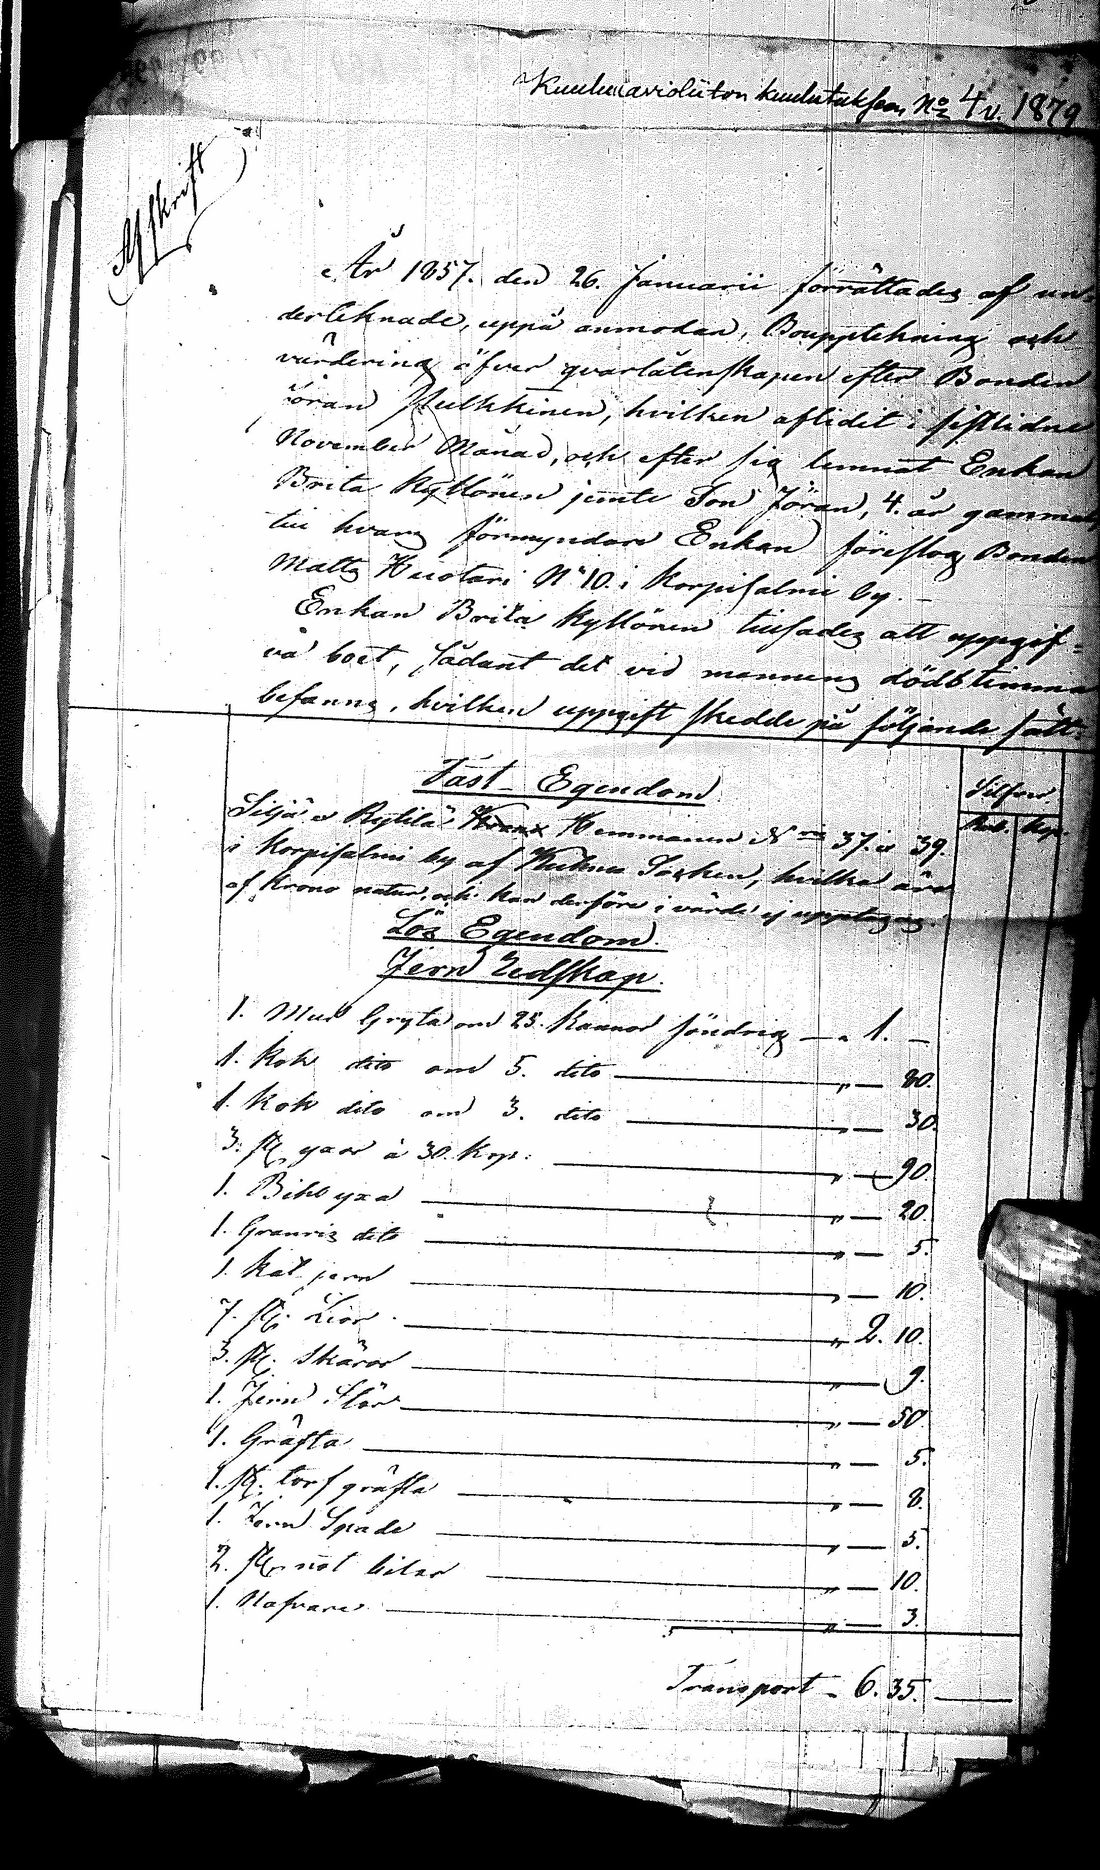 Kuulu avioliiton kuulutukseen No 4 v. 1879
Afskrift
År 1857. den 26. Januarii förrättades af un=
derteknade, uppå anmodan, Bouppteckning och
värdering öfver qvarlåtenskapen efter Bonden
Jöran Pulkkinen, hvilken aflidit i sistlidne
November Månad, och efter sig lemnat Enkan
Brita Kyllönen jemte Son Jöran, 4. år gammal,
till hvars förmyndare Enkan föreslog Bonden
Matts Huotari No 10. i Korpisalmi by. —
Enkan Brita Kyllönen tillsades att uppgif=
va boet, sådant det vid mannens dödstimma
befanns, hvilken uppgift skedde på följande sätt:
Fast Egendom
Silfver.
Rub. Kop.
Siljä o Rytilä Hemmanen No 37. o 39.
i Korpisalmi by af Kuhmo Socken, hvilka äro
af Krono natur, och kan derföre i värde ej upptagas.
Lös Egendom.
Jern Redskap.
1. Mur Gryta om 25. Kannor söndrig — " 1. —
1. Kok dito om 5. dito " — 80.
1. Kok dito om 3. dito " — 30.
3. st. yxor à 30. Kop. " — 90.
1. Bihl yxa " — 20.
1. Granris dito " — 5.
1. Kat jern " — 10.
7. st. Liar " 2. 10.
3. st. Skäror " — 9.
1. Jern Stör " — 50.
1. Gräfta " — 5.
1. st. torf gräfta " — 8.
1. Jern Spade " — 5.
2. st. not bilar " — 10.
1. Nafvare " — 3.
Transport - 6. 35.